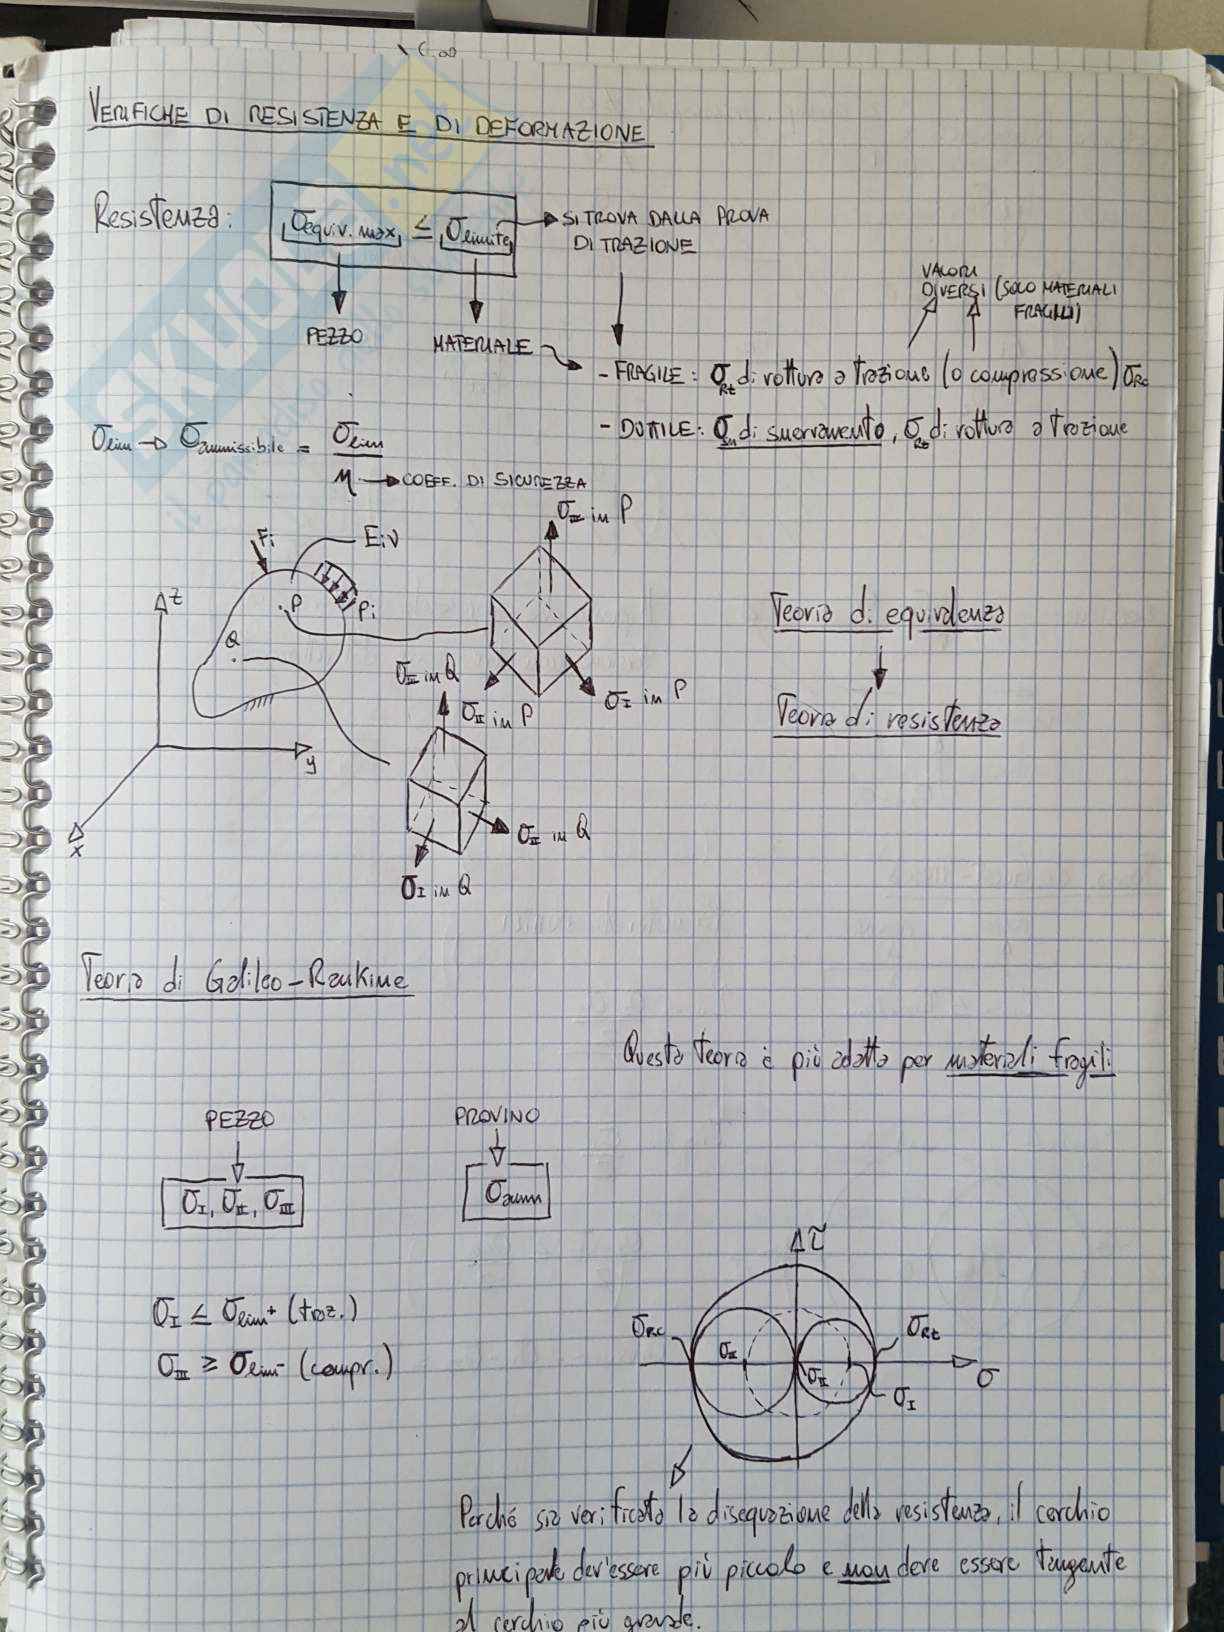 VERIFICHE DI RESISTENZA E DI DEFORMAZIONE
Resistenza: σequiv. max. ≤ σlimite → SI TROVA DALLA PROVA
DI TRAZIONE
PEZZO
MATERIALE
VALORI
DIVERSI (SOLO MATERIALI
FRAGILI)
- FRAGILE: σRt di rottura a trazione (o compressione) σRc
- DUTTILE: σsn di snervamento, σRt di rottura a trazione
σlim → σammissibile = σlim
η → COEFF. DI SICUREZZA
Fi
E, ν
Pi
P
Q
z
y
x
σIII in P
σII in P
σI in P
σIII in Q
σII in Q
σI in Q
Teoria di equivalenza
Teoria di resistenza
Teoria di Galileo-Rankine
Questa teoria è più adatta per materiali fragili
PEZZO
PROVINO
σI, σII, σIII
σamm
σI ≤ σlim+ (traz.)
σIII ≥ σlim- (compr.)
τ
σRc
σRt
σIII
σII
σI
σ
Perché sia verificata la disequazione della resistenza, il cerchio
principale dev'essere più piccolo e non deve essere tangente
al cerchio più grande.
SKUOLA.net